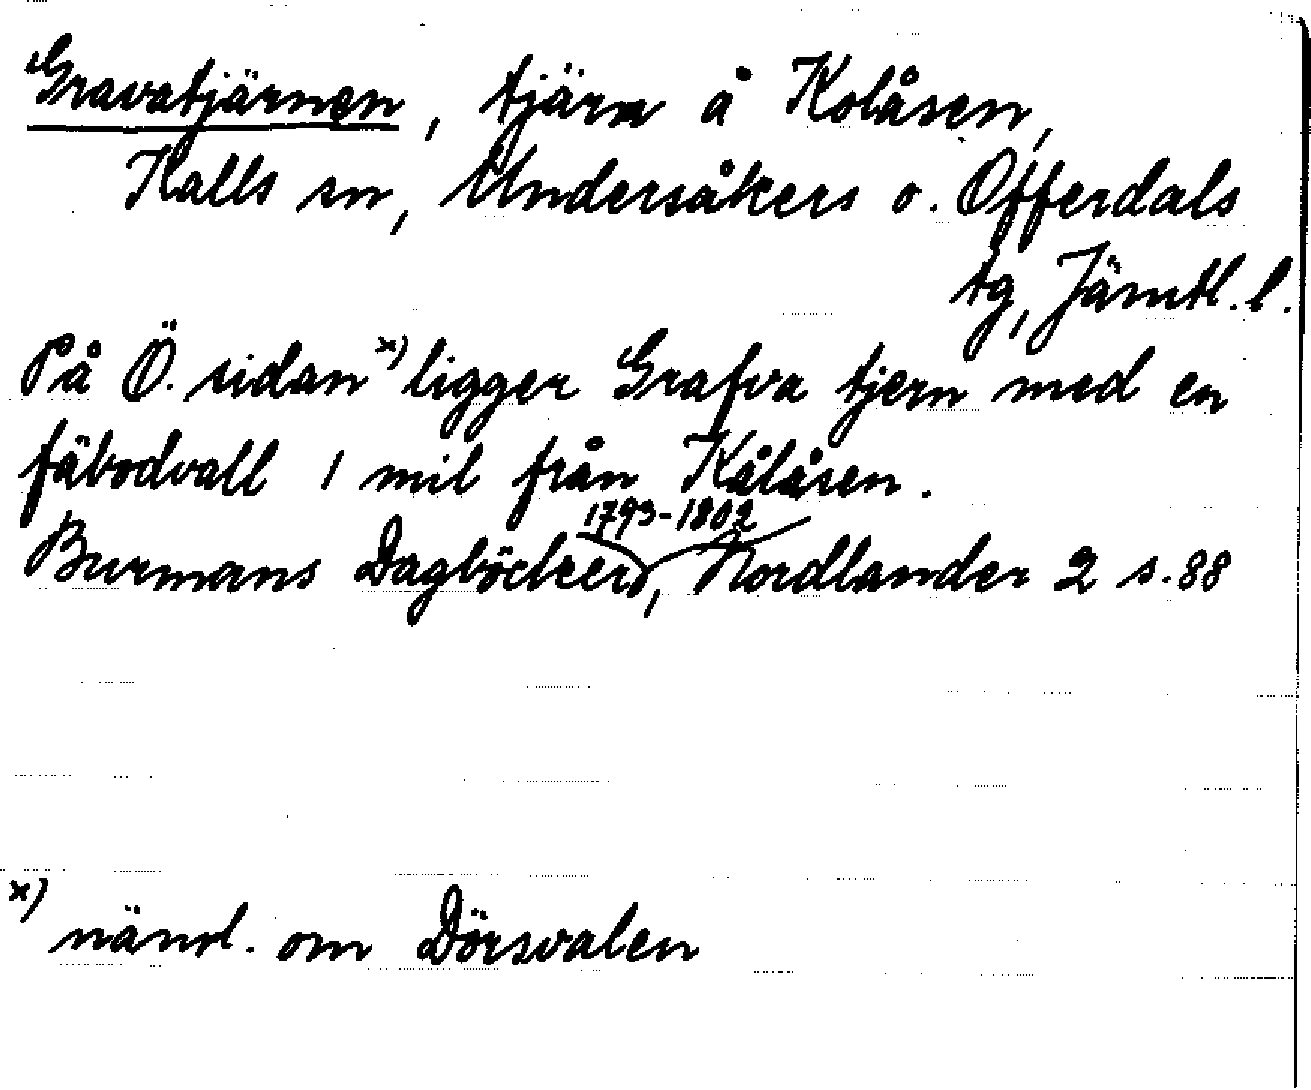 Gravatjärnen, tjärn å Kolåsen,
Kalls sn, Undersåkers o. Offerdals
tg, Jämtl. l.
På Ö. sidan x) ligger Grafva tjern med en
fäbodvall 1 mil från Kålåsen.
1793-1802
Burmans Dagböcker, Nordlander 2 s. 88
x) näml. om Dörsvalen